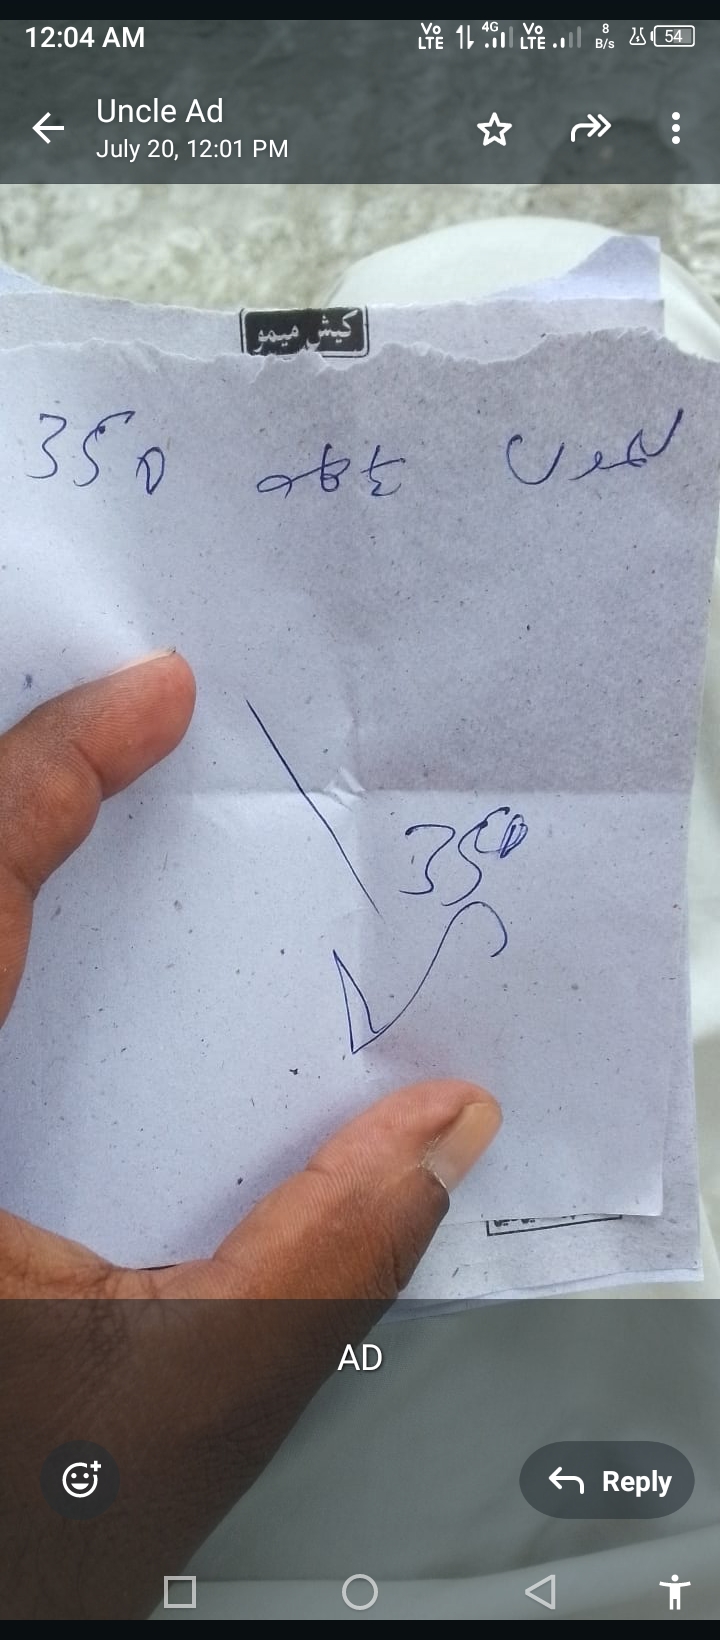 12:04 AM Vo LTE 4G Vo LTE 8 B/s 54
Uncle Ad
July 20, 12:01 PM
کیش میمو
350
350
AD
Reply